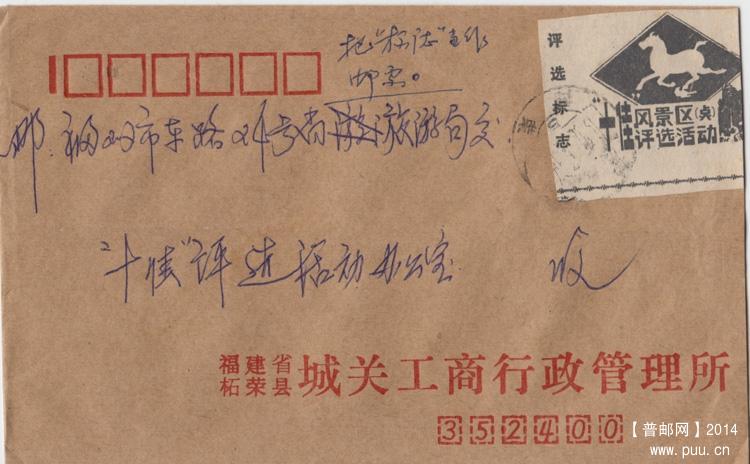 把“标志”当作
邮票。
评选标志
“十佳风景区(点)
评选活动
邮:福州市东路 号省旅游局交
“十佳”评选活动办公室 收
福建省
柘荣县 城关工商行政管理所
352400
【普邮网】2014
www.puu.cn